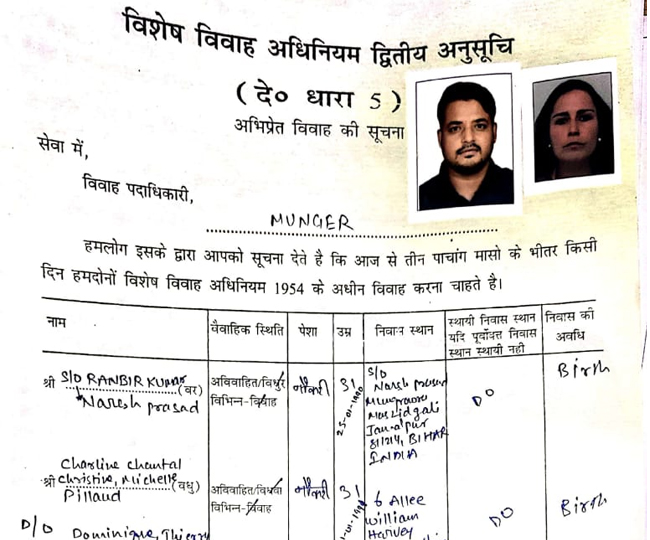 विशेष विवाह अधिनियम द्वितीय अनुसूचि
( दे० धारा 5 )
अभिप्रेत विवाह की सूचना
सेवा में,
विवाह पदाधिकारी,
MUNGER
हमलोग इसके द्वारा आपको सूचना देते है कि आज से तीन पाचांग मासो के भीतर किसी
दिन हमदोनों विशेष विवाह अधिनियम 1954 के अधीन विवाह करना चाहते है।
नाम
वैवाहिक स्थिति
पेशा
उम्र
निवास स्थान
स्थायी निवास स्थान
यदि पूर्वोक्त निवास
स्थान स्थायी नही
निवास की
अवधि
श्री S/O RANBIR KUMAR (वर)
Naresh prasad
अविवाहित/विधुर
विभिन्न-विवाह
नौकरी
31
25-01-1990
S/O
Naresh prasad
Mungraura
Masjidgali
Jamalpur
811214, BIHAR
INDIA
DO
Birth
Charline chantal
श्री Christine, Michelle (वधु)
Pillaud
अविवाहित/विधवा
विभिन्न-विवाह
नौकरी
31
6 Allee
William
Harvey
DO
Birth
D/O Dominique, Thierry